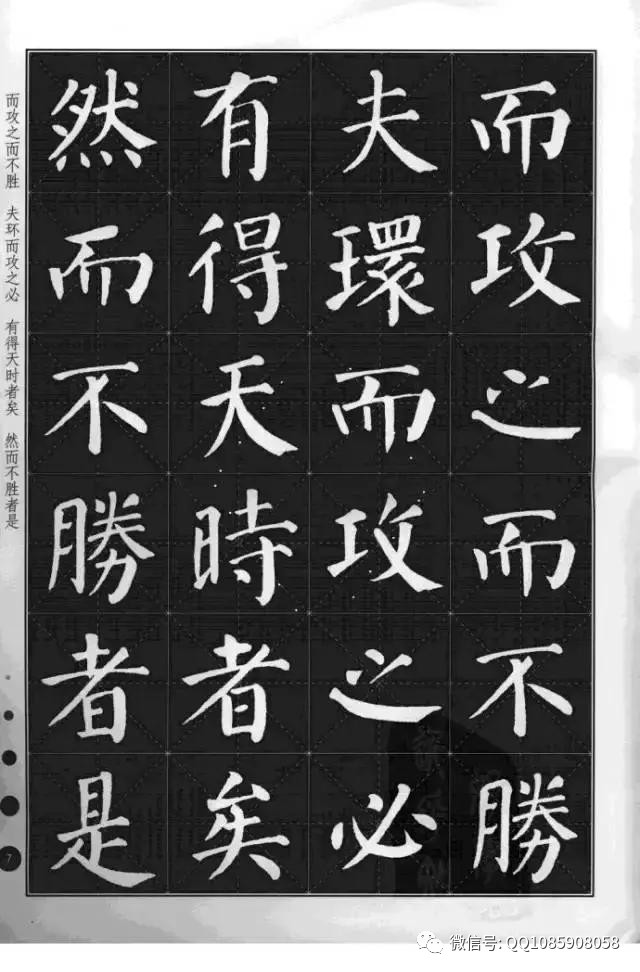 而攻之而不勝
夫環而攻之必
有得天時者矣
然而不勝者是
而攻之而不胜 夫环而攻之必 有得天时者矣 然而不胜者是
7
微信号: QQ1085908058